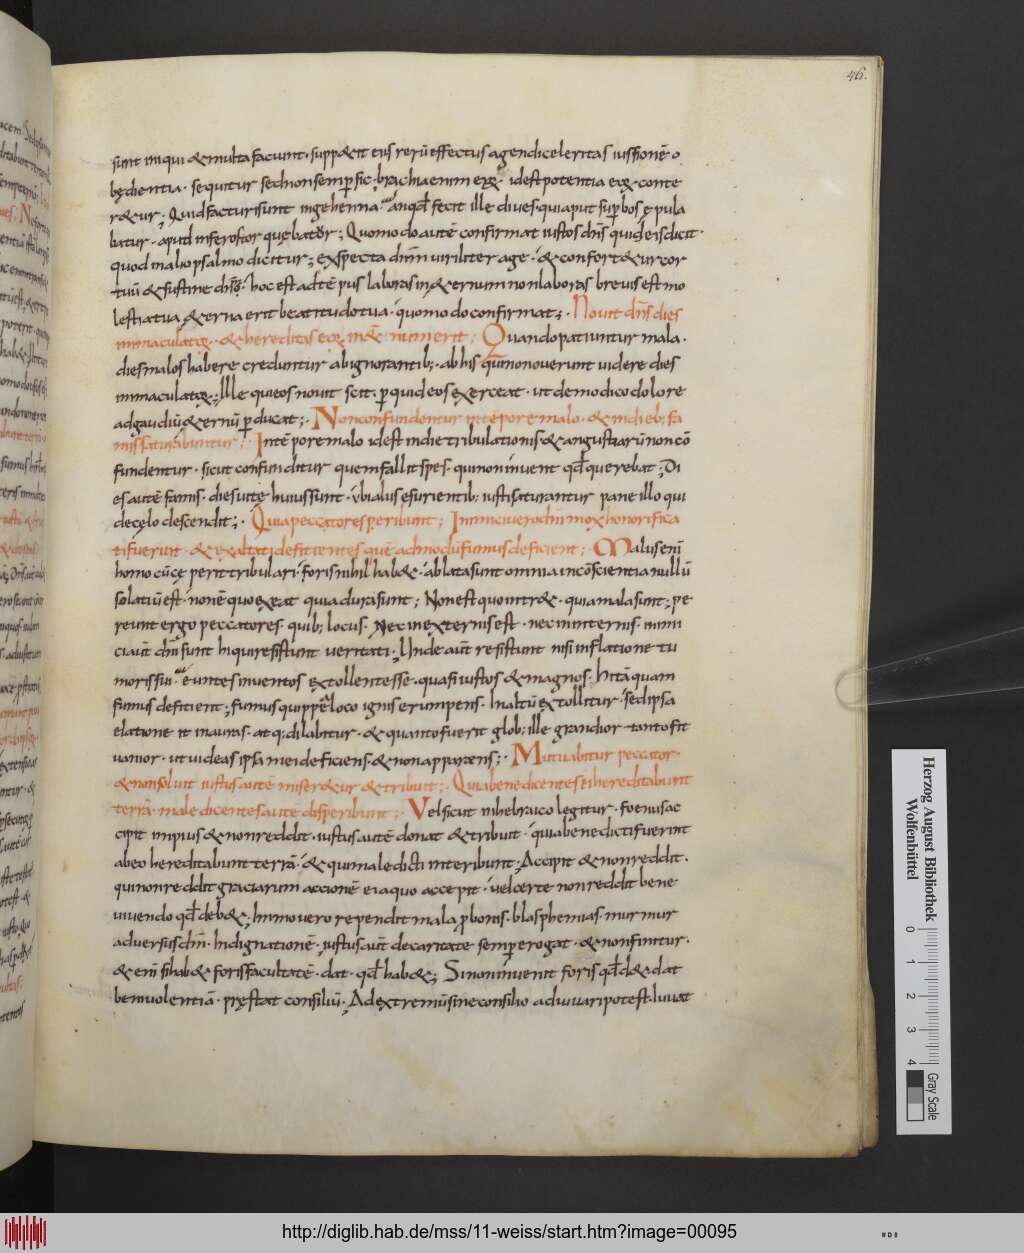 46.
sunt iniqui &multa faciunt. supp&it eis rerū effectus agendi celeritas iussionē o
będientia. sequitur sed non semper sic. brachia enim eorum. idest potentia eorum conte
r&ur; Quid facturi sunt in gehenna. an quod fecit ille dives. qui aput superbos ępula
batur. apud inferos torquębatur; Quomodo autē confirmat iustos dn̄s quid eis dicit.
quod in alio psalmo dicitur; exspecta dn̄m viriliter age. &confort&ur cor
tuū &sustine dn̄m. hoc est ad tēpus laboras in &ernum non laboras brevis est mo
lestia tua, &erna erit beatitudo tua. quomodo confirmat; Novit dn̄s dies
immaculatorum. &hereditas eorum in &ernum erit; Quando patiuntur mala.
dies malos habere creduntur ab ignorantib;. ab his qui non noverunt videre dies
immaculatorum; Ille qui eos novit scit. per quid eos exerceat. ut de modico dolore
ad gaudiū &ernū perducat; Non confundentur in tēpore malo. &in dieb; fa
mis saturabuntur; In tēpore malo idest in die tribulationis &angustiarū non cō
fundentur. sicut confunditur quem fallit spes. qui non invenit quod querebat; Di
es autē famis. dies vitę huius sunt. ubi aliis esurientib; iusti saturantur pane illo qui
de cęlo descendit; Quia peccatores peribunt; Inimici vero dn̄i mox honorifica
ti fuerint &exaltati deficientes quē admodū fumus deficient; Malus enī
homo cū cęperit tribulari. foris nihil hab&. ablata sunt omnia in cōscientia nullū
solatiū est. non ē quo exeat quia dura sunt; Non est quo intr&. quia mala sunt; pe
reunt ergo peccatores. quib; locus. nec in externis est. nec in internis. inimi
ci aut̄ dn̄i sunt hi qui resistunt veritati; Unde aut̄ resistunt nisi inflatione tu
moris sui. euntes inventos extollentes se. quasi iustos &magnos. hi tāquam
fumus deficient; fumus quippe loco ignis erumpens. In altū extollitur. sed ipsa
elatione it in auras. atq; dilabitur. &quanto fuerit glob; ille grandior tanto fit
vanior. ut videas ipsam iei deficiens. &non apparens; Mutuabitur peccator.
&non solvit iustus autē miser&ur &tribuit; Quia benedicentes ei hereditabunt
terrā. maledicentes autē disperibunt; Vel sicut in hebraico legitur. foenus ac
cipit impius &non reddit. iustus autē donat &tribuit. quia benedicti fuerint
ab eo hereditabunt terrā. &qui maledicti interibunt; Accipit &non reddit.
qui non reddit gratiarum accionē ei a quo accepit. vel certe non reddit bene
vivendo quod deb&; Immo vero rependit mala pro bonis. blasphemias. murmur
adversus dn̄m. Indignationē. iustus aut̄ de caritate semper erogat. &non finitur.
&enī si hab& foris facultatē. dat. quod hab&; Si non invenit foris quod d& dat
benivolentiā. pręstat consiliū. Ad extremū si ne consilio adiuvari potest. Iuvat
Herzog August Bibliothek
Wolfenbüttel
0 1 2 3 4
Gray Scale
http://diglib.hab.de/mss/11-weiss/start.htm?image=00095